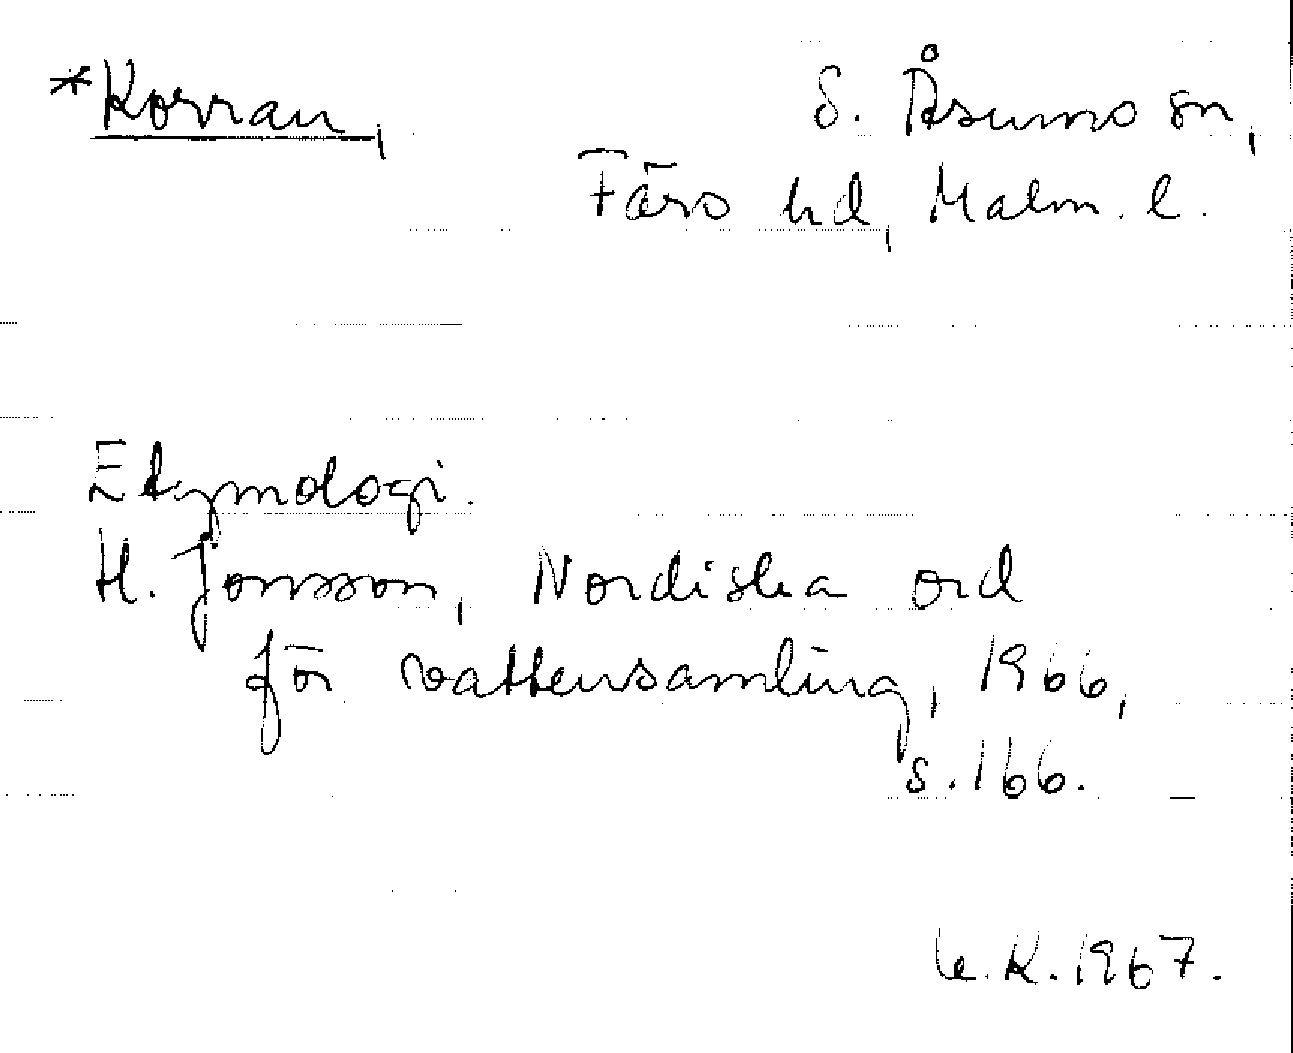 *Korran, S. Åsums sn,
Färs hd, Malm. l.
Etymologi.
H. Jonsson, Nordiska ord
för vattensamling, 1966,
s. 166.
K. 1967.